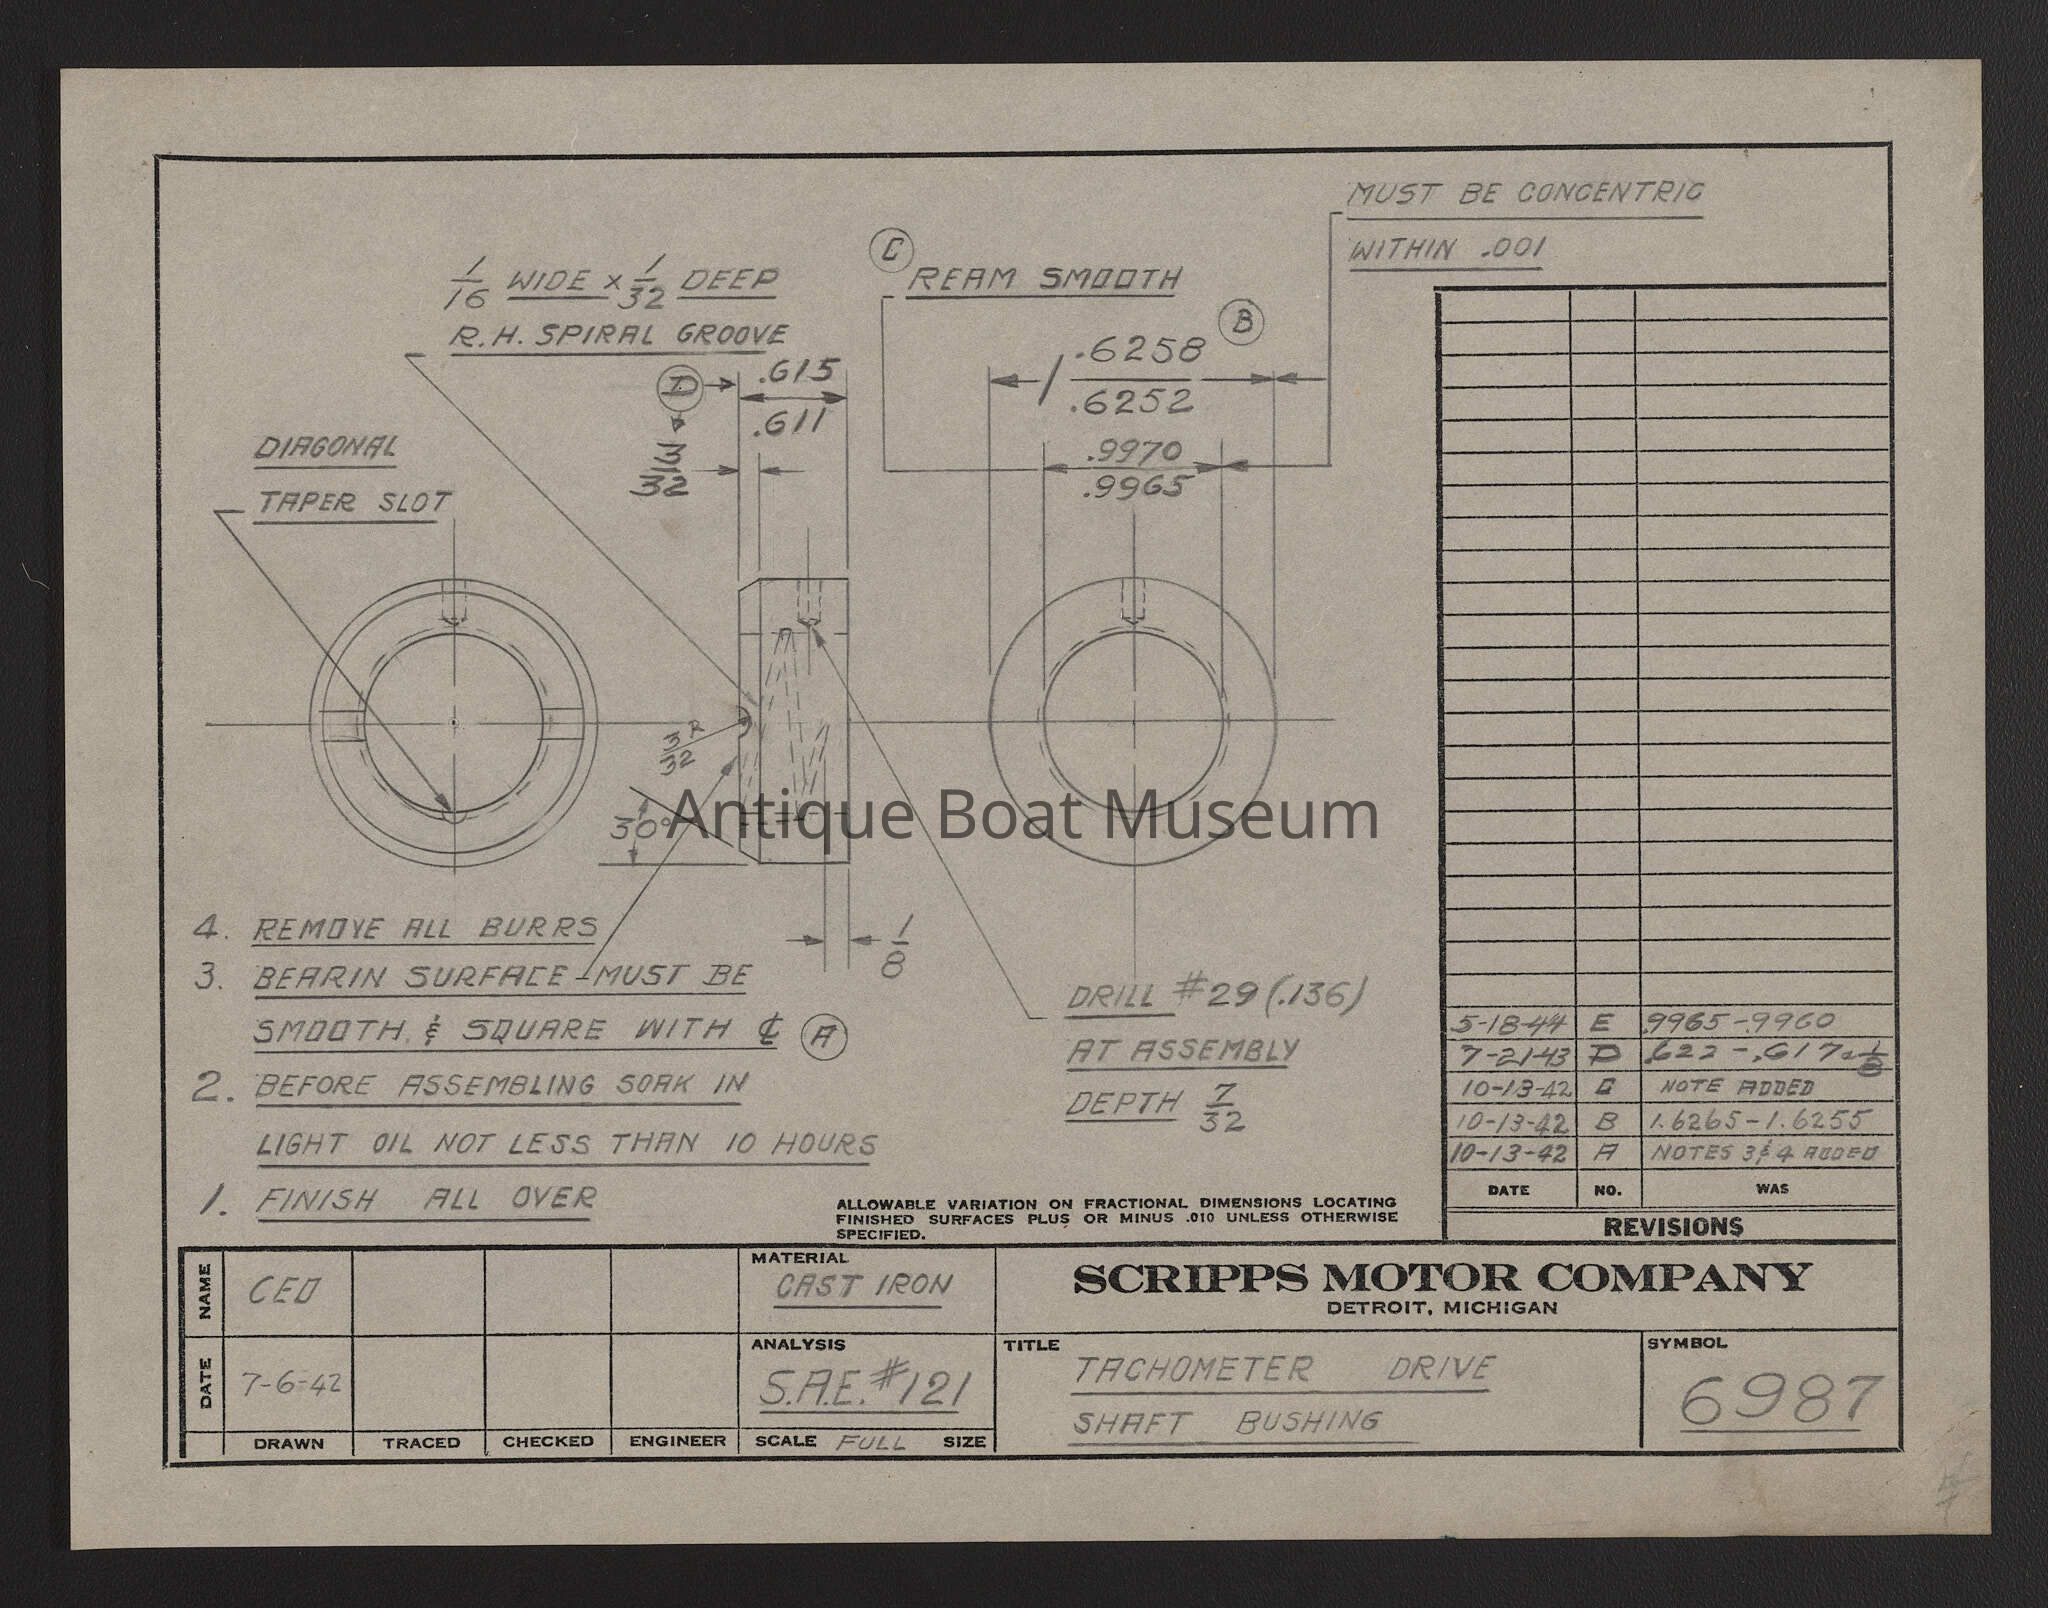 MUST BE CONCENTRIC
WITHIN .001
C
REAM SMOOTH
1/16 WIDE x 1/32 DEEP
R.H. SPIRAL GROOVE
B
1 .6258
.6252
D
.615
.611
3/32
.9970
.9965
DIAGONAL
TAPER SLOT
3/32 R
30°
Antique Boat Museum
1/8
4. REMOVE ALL BURRS
3. BEARIN SURFACE - MUST BE
SMOOTH & SQUARE WITH ℄ A
2. BEFORE ASSEMBLING SOAK IN
LIGHT OIL NOT LESS THAN 10 HOURS
1. FINISH ALL OVER
DRILL #29 (.136)
AT ASSEMBLY
DEPTH 7/32
ALLOWABLE VARIATION ON FRACTIONAL DIMENSIONS LOCATING
FINISHED SURFACES PLUS OR MINUS .010 UNLESS OTHERWISE
SPECIFIED.
5-18-44 E .9965-.9960
7-21-43 D .622-.617 & 1/8
10-13-42 C NOTE ADDED
10-13-42 B 1.6265-1.6255
10-13-42 A NOTES 3 & 4 ADDED
DATE NO. WAS
REVISIONS
NAME CEO
DATE 7-6-42
DRAWN TRACED CHECKED ENGINEER
MATERIAL
CAST IRON
ANALYSIS
S.A.E. #121
SCALE FULL SIZE
SCRIPPS MOTOR COMPANY
DETROIT, MICHIGAN
TITLE
TACHOMETER DRIVE
SHAFT BUSHING
SYMBOL
6987